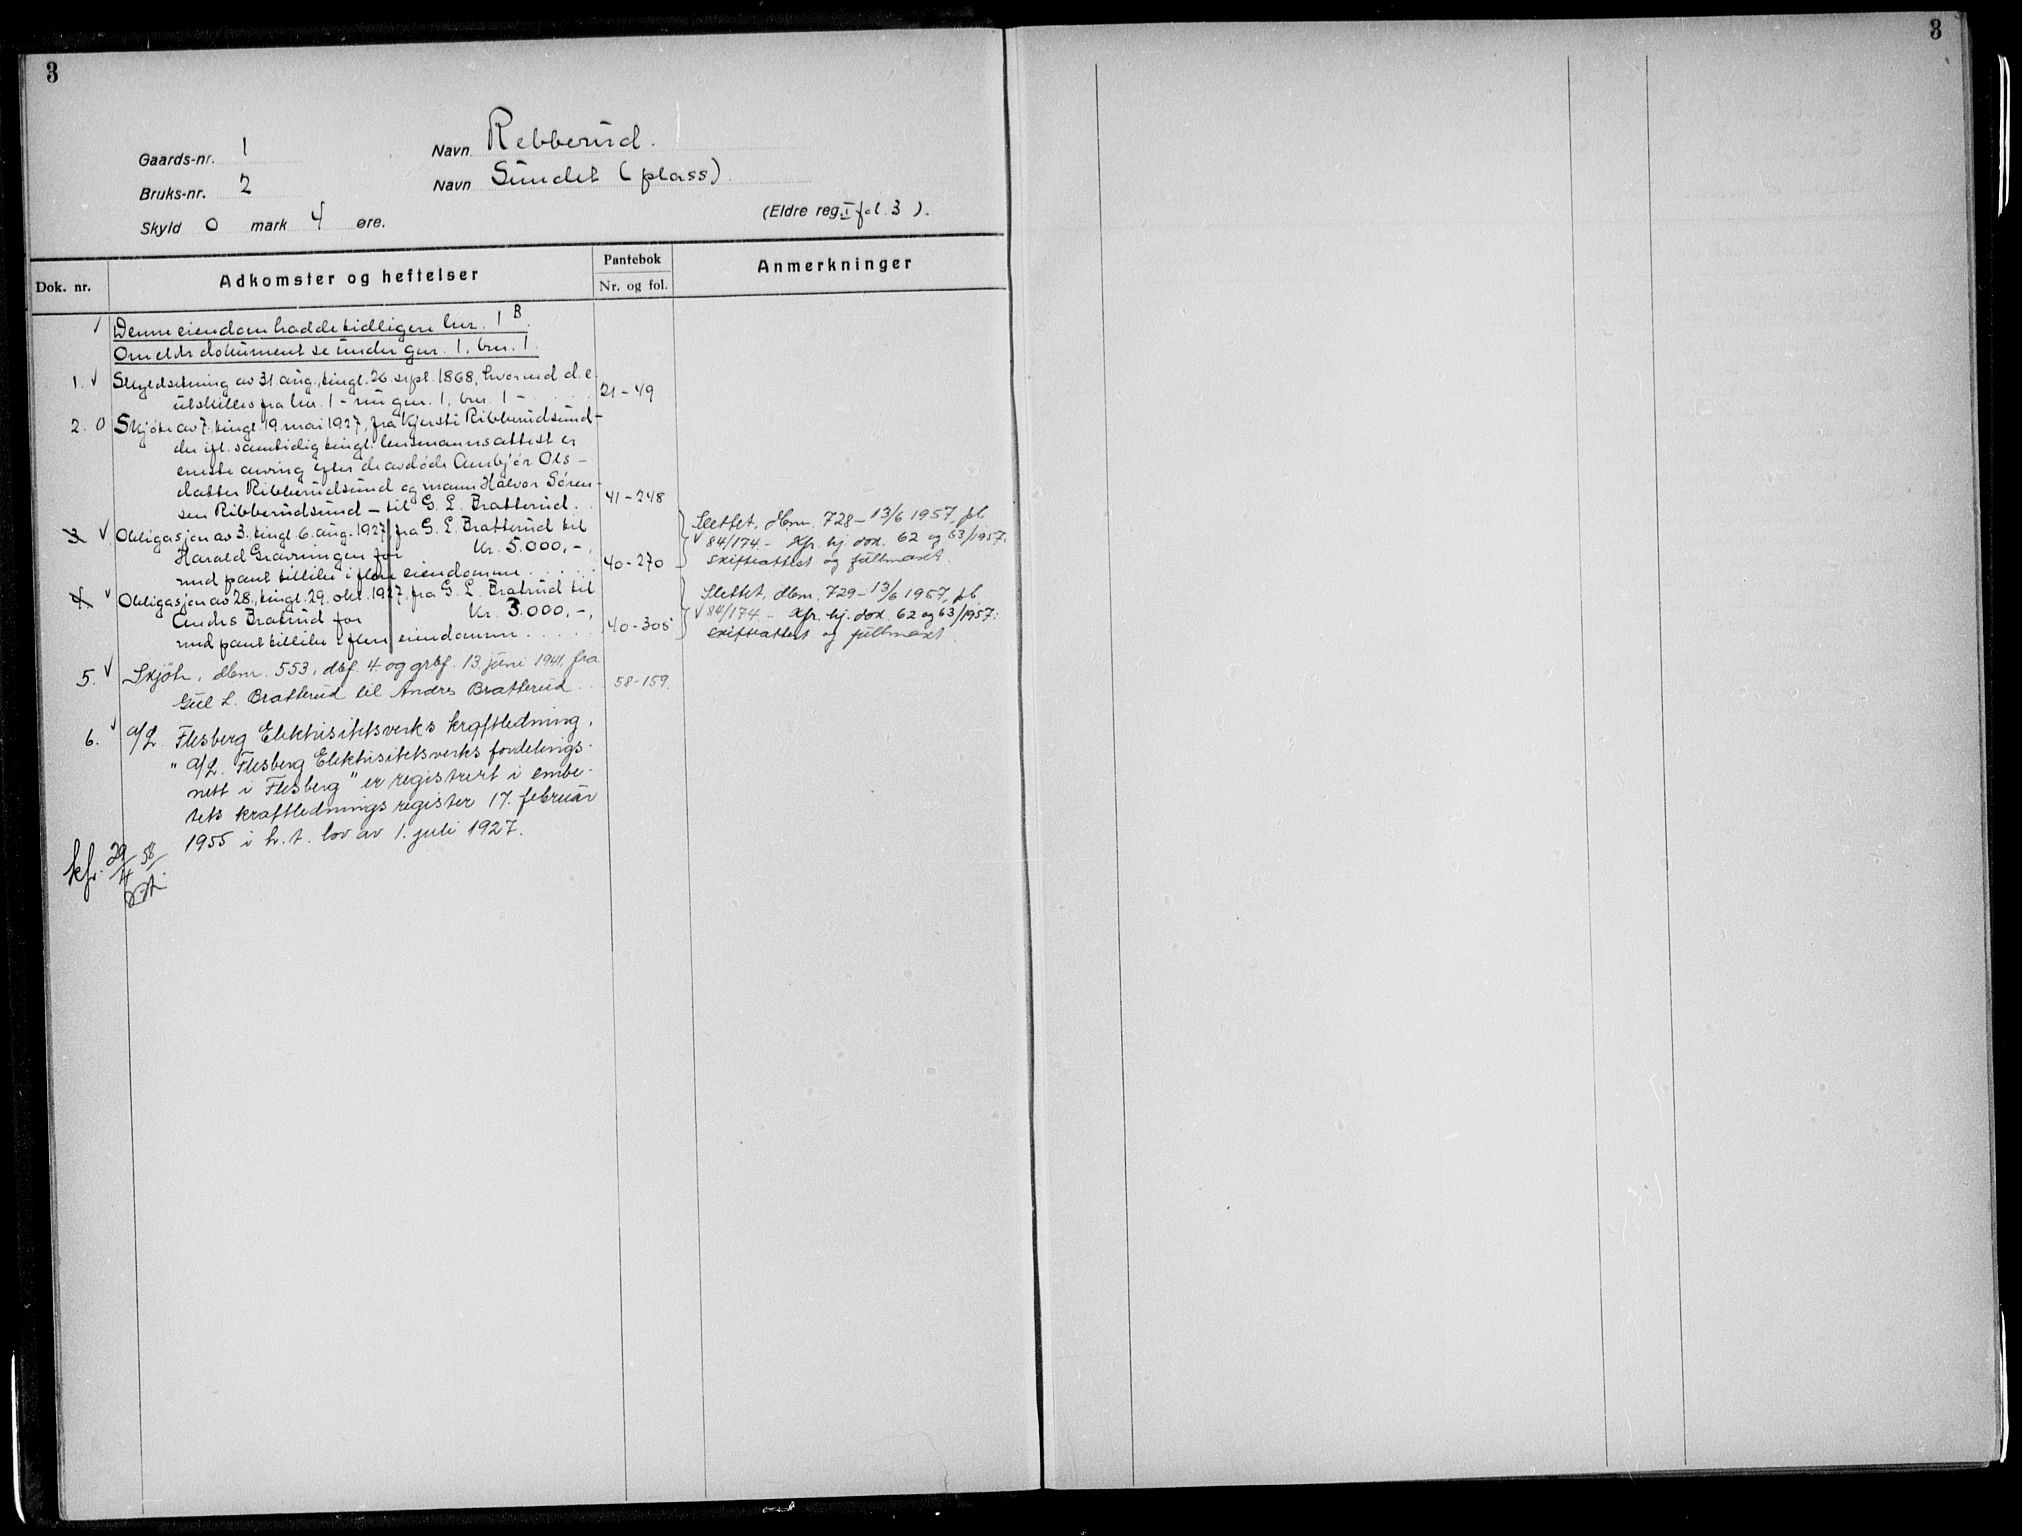 3
3
Gaards-nr. 1 Navn Rebberud.
Bruks-nr. 2 Navn Sundet (plass)
Skyld 0 mark 4 øre. (Eldre reg. I fol. 3 ).
Dok. nr. Adkomster og heftelser Pantebok Nr. og fol. Anmerkninger
Denne eiendom hadde tidligere lnr. 1 B.
Om eldr. dokument se under gnr. 1, bnr. 1.
1. Skyldsetning av 31. aug., tingl. 26. sept. 1868, hvorved d. e.
utskilles fra lnr. 1 - nu gnr. 1, bnr. 1 - 21-49
2. 0 Skjøte av 7., tingl. 19. mai 1927, fra Kjersti Ribberudsund-
der ifl. samtidig tingl. lensmannsattest er
eneste arving efter de avdøde Annbjør Ols-
datter Ribberudsund og mann Halvor Søren-
sen Ribberudsund - til G. L. Bratterud. 41-248
3. Obligasjon av 3., tingl. 6. aug. 1927, fra G. L. Bratterud til
Harald Gravningen for Kr. 5.000,-,
med pant tillike i flere eiendomme 40-270
Slettet, dbnr. 728 - 13/6 1957, pb
84/174 - Kfr. hj. dok. 62 og 63/1957.
skifteattest og fullmakt.
4. Obligasjon av 28., tingl. 29. okt. 1927, fra G. L. Bratrud til
Andrs Bratrud for Kr. 3.000,-,
med pant tillike i flere eiendomme 40-305
Slettet, dbnr. 729 - 13/6 1957, pb
84/174 - Kfr. hj. dok. 62 og 63/1957:
skifteattest og fullmakt.
5. Skjøte, dbnr. 553, dbf. 4. og grbf. 13. juni 1941, fra
Gul L. Bratterud til Andres Bratterud. 58-159.
6. a/L. Flesberg Elektrisitetsverks kraftledning,
" a/L. Flesberg Elektrisitetsverks fordelings-
nett i Flesberg" er registrert i embe-
tets kraftledningsregister 17. februar
1955 i h. t. lov av 1. juli 1927.
kfr. 29/4 58/